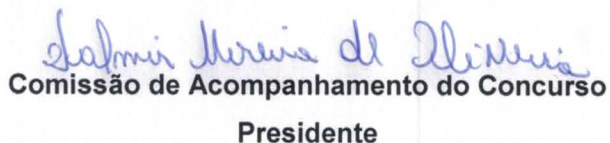 de Oliveira
Comissão de Acompanhamento do Concurso
Presidente